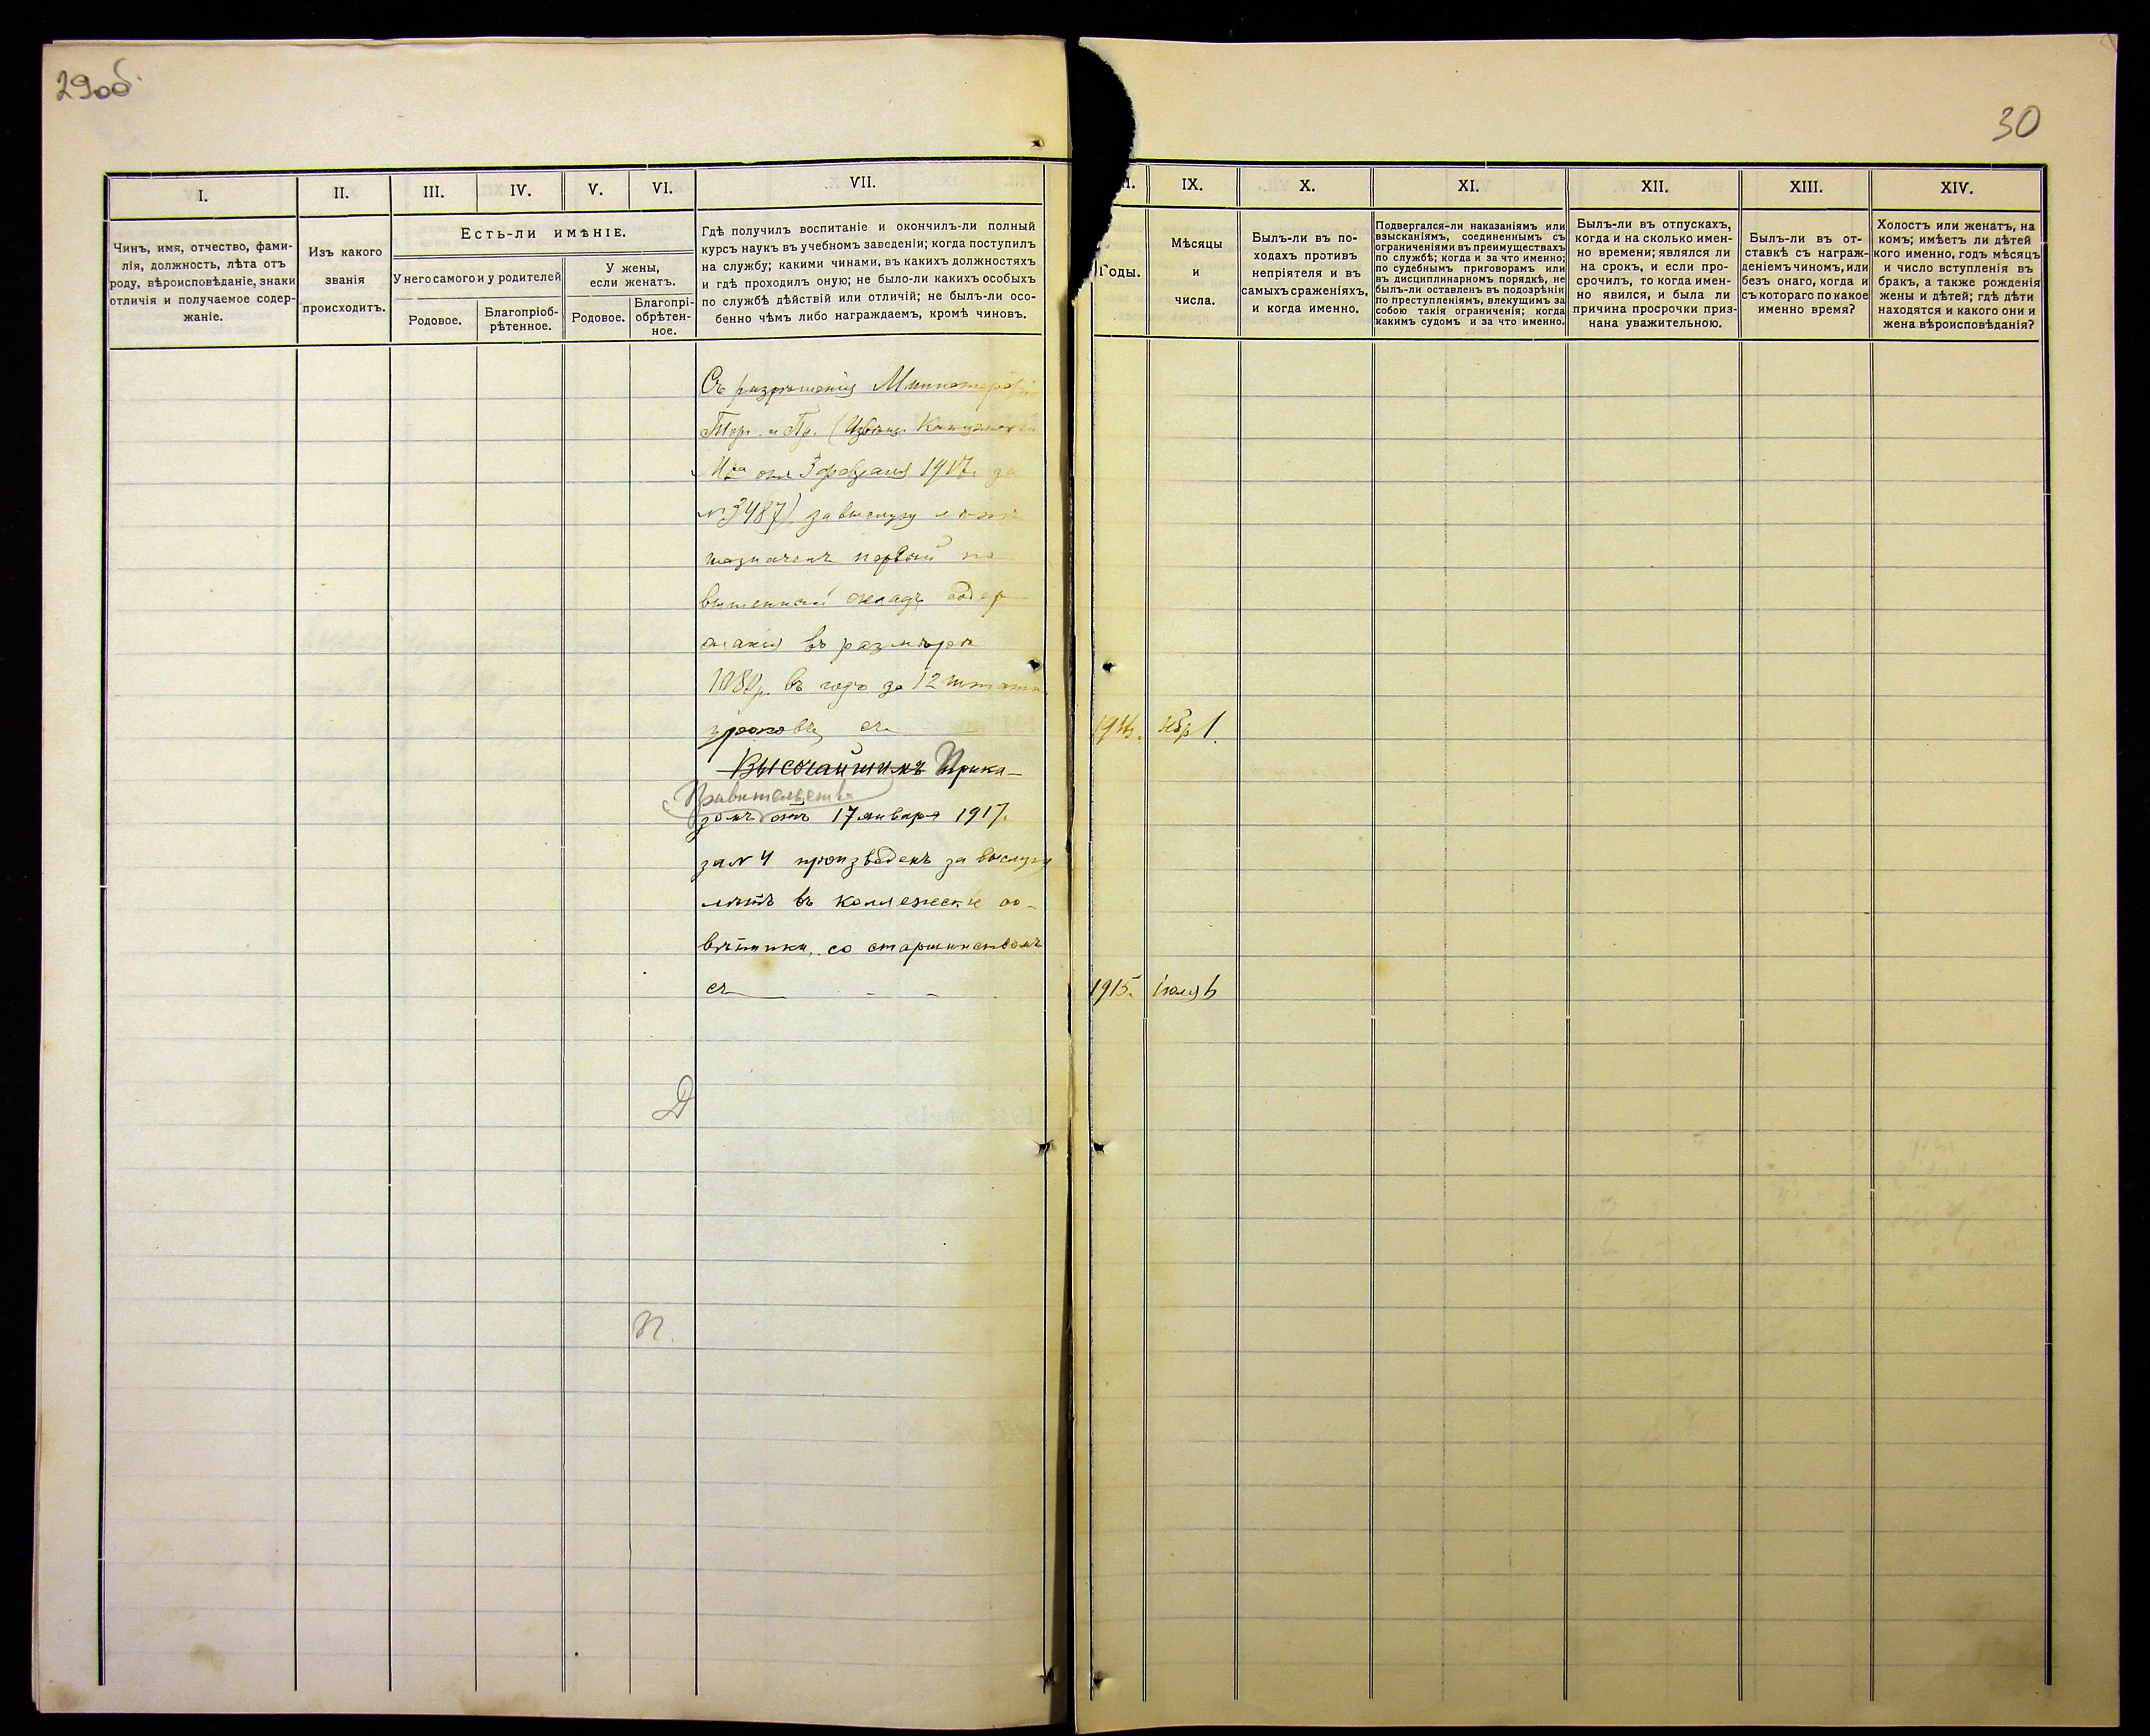 29об.
30
I.
Чинъ, имя, отчество, фами-
лія, должность, лѣта отъ
роду, вѣроисповѣданіе, знаки
отличія и получаемое содер-
жаніе.
II.
Изъ какого
званія
происходитъ.
III. IV. V. VI.
Есть-ли имѣніе.
У него самого и у родителей
У жены,
если женатъ.
Родовое.
Благопріоб-
рѣтенное.
Родовое.
Благопрі-
обрѣтен-
ное.
VII.
Гдѣ получилъ воспитаніе и окончилъ-ли полный
курсъ наукъ въ учебномъ заведеніи; когда поступилъ
на службу; какими чинами, въ какихъ должностяхъ
и гдѣ проходилъ оную; не было-ли какихъ особыхъ
по службѣ дѣйствій или отличій; не былъ-ли осо-
бенно чѣмъ либо награждаемъ, кромѣ чиновъ.
Годы.
IX.
Мѣсяцы
и
числа.
X.
Былъ-ли въ по-
ходахъ противъ
непріятеля и въ
самыхъ сраженіяхъ,
и когда именно.
XI.
Подвергался-ли наказаніямъ или
взысканіямъ, соединеннымъ съ
ограниченіями въ преимуществахъ
по службѣ; когда и за что именно;
по судебнымъ приговорамъ или
въ дисциплинарномъ порядкѣ, не
былъ-ли оставленъ въ подозрѣніи
по преступленіямъ, влекущимъ за
собою такія ограниченія; когда
какимъ судомъ и за что именно.
XII.
Былъ-ли въ отпускахъ,
когда и на сколько имен-
но времени; являлся ли
на срокъ, и если про-
срочилъ, то когда имен-
но явился, и была ли
причина просрочки приз-
нана уважительною.
XIII.
Былъ-ли въ от-
ставкѣ съ награж-
деніемъ чиномъ, или
безъ онаго, когда и
съ котораго по какое
именно время?
XIV.
Холостъ или женатъ, на
комъ; имѣетъ ли дѣтей
кого именно, годъ мѣсяцъ
и число вступленія въ
бракъ, а также рожденія
жены и дѣтей; гдѣ дѣти
находятся и какого они и
жена вѣроисповѣданія?
Съ разрѣшенія Министерства
Торг. и Пр. (Извѣщ. Канцеляріи
М-ва отъ 3 февраля 1917 г. за
№ 3487) за выслугу лѣтъ
назначенъ первый по
вышенный окладъ содер
жанія въ размѣрѣ
1080 р. въ годъ за 12 штатн
уроковъ, съ
нбр 1.
Высочайшимъ Прика-
Правительства
зомъ отъ 17 января 1917 г.
за № 4 произведенъ за выслугу
лѣтъ въ коллежскіе со-
вѣтники, со старшинствомъ
съ 1915. іюля 6
Д
П.